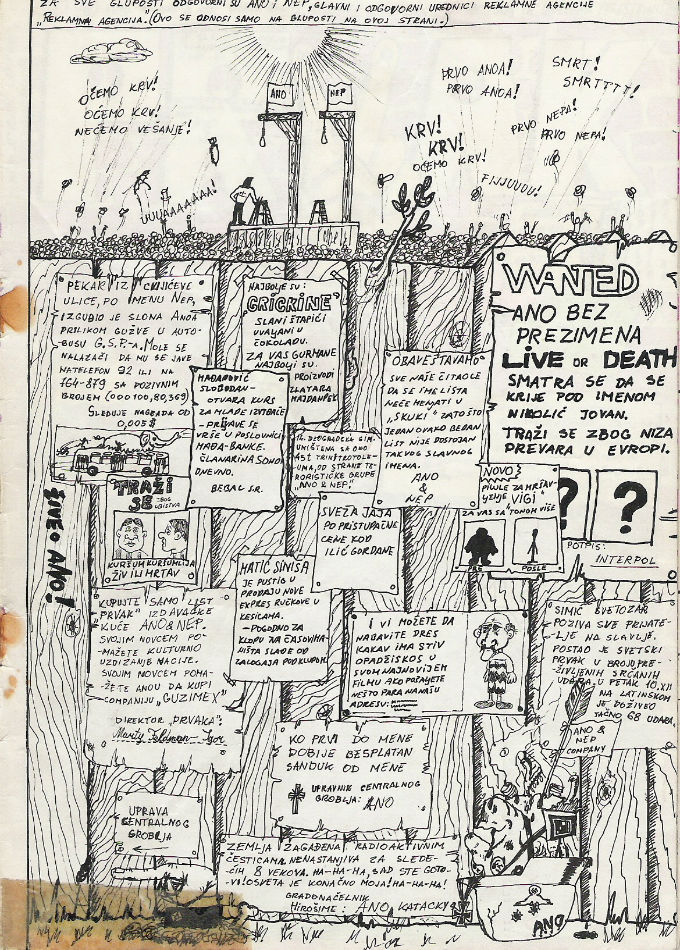 ZA SVE GLUPOSTI ODGOVORNI SU ANO I NEP, GLAVNI I ODGOVORNI UREDNICI REKLAMNE AGENCIJE
„REKLAMNA AGENCIJA." (OVO SE ODNOSI SAMO NA GLUPOSTI NA OVOJ STRANI.)
OĆEMO KRV!
OĆEMO KRV!
NEĆEMO VEŠANJE!
UUUAAAAAAA!
ANO
NEP
KRV!
KRV!
OĆEMO KRV!
PRVO ANOA!
PRVO ANOA!
SMRT!
SMRTTTT!
PRVO NEPA!
PRVO NEPA!
FIJUUUU!
PEKAR IZ
ULICE, PO IMENU NEP,
IZGUBIO JE SLONA ANOA
PRILIKOM GUŽVE U AUTO-
BUSU G.S.P-A. MOLE SE
NALAZAČI DA MU SE JAVE
NA TELEFON 92 ILI NA
464-879 SA POZIVNIM
BROJEM (000100,80,369)
SLEDUJE NAGRADA OD
0,005$
TRAŽI
SE ZBOG
UBISTVA
KURŠUM KURŠUMLIJA
ŽIV ILI MRTAV
ŽIVEO ANO!
NAJBOLJE SU:
GRICKINE
SLANI ŠTAPIĆI
UVALJANI U
ČOKOLADU.
ZA VAS GURMANE
NAJBOLJI SU
PROIZVODI
ZLATARA
MAJDANPEK
MAĐAROVIĆ
SLOBODAN-
OTVARA KURS
ZA MLADE IZVIĐAČE
-PRIJAVE SE
VRŠE U POSLOVNICI
MAĐA-BANKE.
ČLANARINA SONO
DNEVNO.
BEBAC SR.
14. BEOGRADSKA GIM.
UNIŠTENA SA OKO
45T TRINITROTOLE-
UMA, OD STRANE TE-
RORISTIČKE GRUPE
„ANO & NEP."
OBAVEŠTAVAMO
SVE NAŠE ČITAOCE
DA SE IME LISTA
NEĆE MENJATI U
„SKUKI" ZATO ŠTO
JEDAN OVAKO BEDAN
LIST NIJE DOSTOJAN
TAKVOG SLAVNOG
IMENA.
ANO
&
NEP
WANTED
ANO BEZ
PREZIMENA
LIVE OR DEATH
SMATRA SE DA SE
KRIJE POD IMENOM
NIKOLIĆ JOVAN.
TRAŽI SE ZBOG NIZA
PREVARA U EVROPI.
?
?
POTPIS:
INTERPOL
NOVO!
PILULE ZA MRŠAV-
„VIGI"
ZA VAS SA TONOM VIŠE
POSLE
SVEŽA JAJA
PO PRISTUPAČNE
CENE KOD
ILIĆ GORDANE
MATIĆ SINIŠA
JE PUSTIO U
PRODAJU NOVE
EXPRES RUČKOVE U
KESICAMA.
-POGODNO ZA
KLOPU NA ČASOVIMA-
NIŠTA SLAĐE OD
ZALOGAJA POD KLUPOM.
KUPUJTE „SAMO LIST
PRVAK" IZDAVAČKE
KUĆE ANO & NEP.
SVOJIM NOVCEM PO-
MAŽETE KULTURNO
UZDIZANJE NACIJE.
SVOJIM NOVCEM POMA-
ŽETE ANOU DA KUPI
KOMPANIJU „GUZIMEX"
DIREKTOR „PRVAKA":
Marty Feldman-Igor
I VI MOŽETE DA
NABAVITE DRES
KAKAV IMA STIV
OPADIŠKOS U
SVOM NAJNOVIJEM
FILMU AKO POŠALJETE
NEŠTO PARA NA NAŠU
ADRESU:
SIMIĆ SVETOZAR
POZIVA SVE PRIJATE-
LJE NA SLAVLJE.
POSTAO JE SVETSKI
PRVAK U BROJU PRE-
ŽIVLJENIH SRČANIH
UDARA. U PETAK 10.XII
NA LATINSKOM
JE DOŽIVEO
TAČNO 68 UDARA.
ANO &
NEP
COMPANY
KO PRVI DO MENE
DOBIJE BESPLATAN
SANDUK OD MENE
UPRAVNIK CENTRALNOG
GROBLJA: ANO
UPRAVA
CENTRALNOG
GROBLJA
ZEMLJA ZAGAĐENA RADIOAKTIVNIM
ČESTICAMA. NENASTANJIVA ZA SLEDE-
ĆIH 8 VEKOVA. HA-HA-HA, SAD STE GOTO-
VI! OSVETA JE KONAČNO MOJA! HA-HA-HA!
GRADONAČELNIK
HIROŠIME: ANO KATACKY
ANO